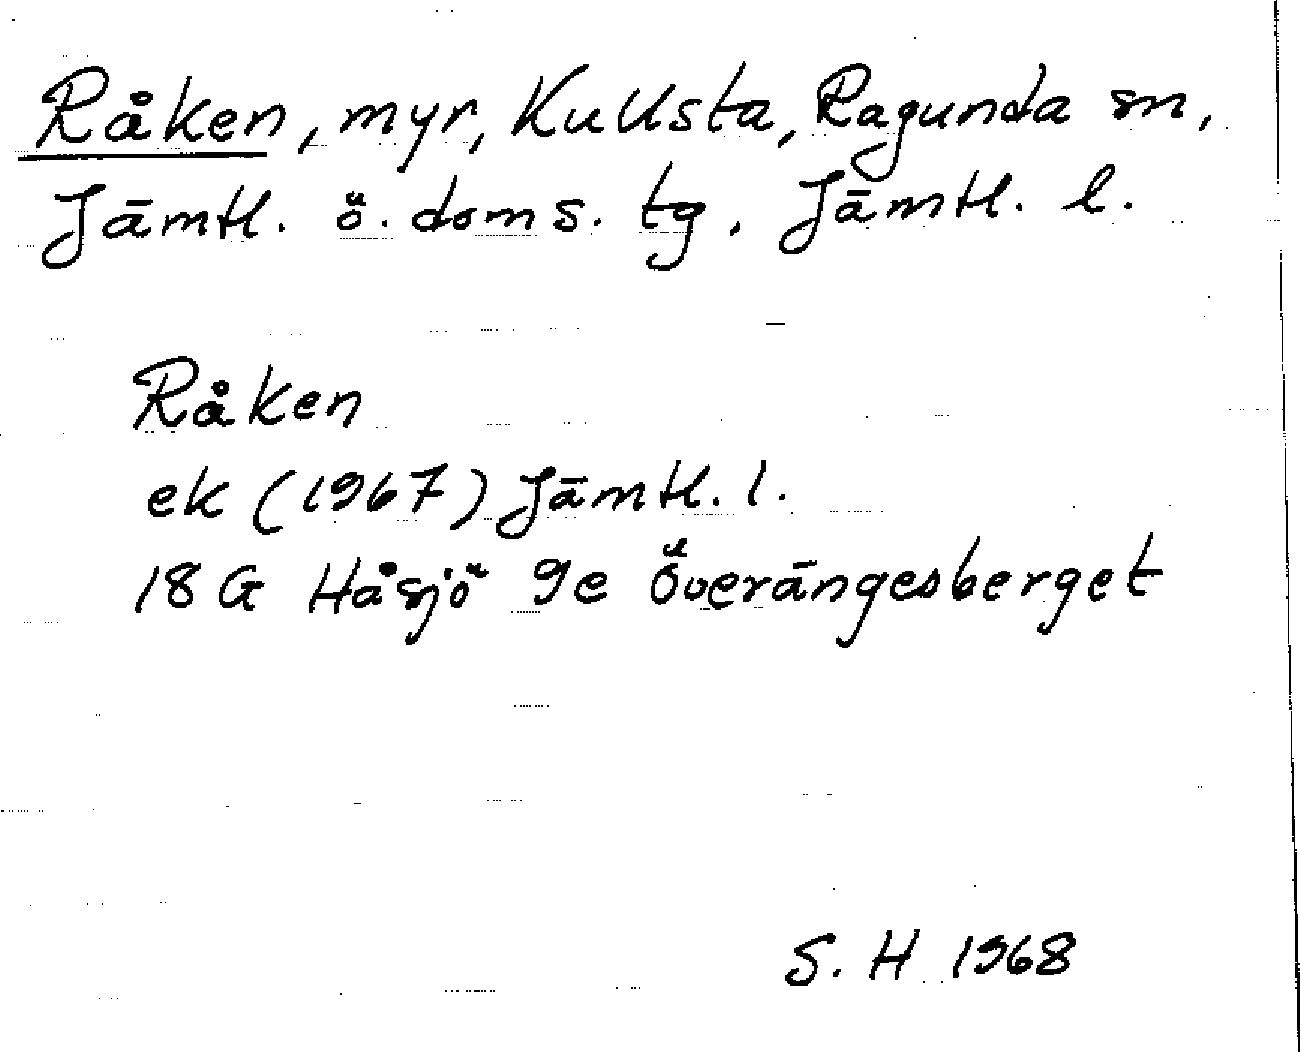 Råken, myr, Kullsta, Ragunda sn,
Jämtl. ö. doms. tg, Jämtl. l.
Råken
ek (1967) Jämtl. l.
18 G Håsjö 9e Överängesberget
S. H 1968